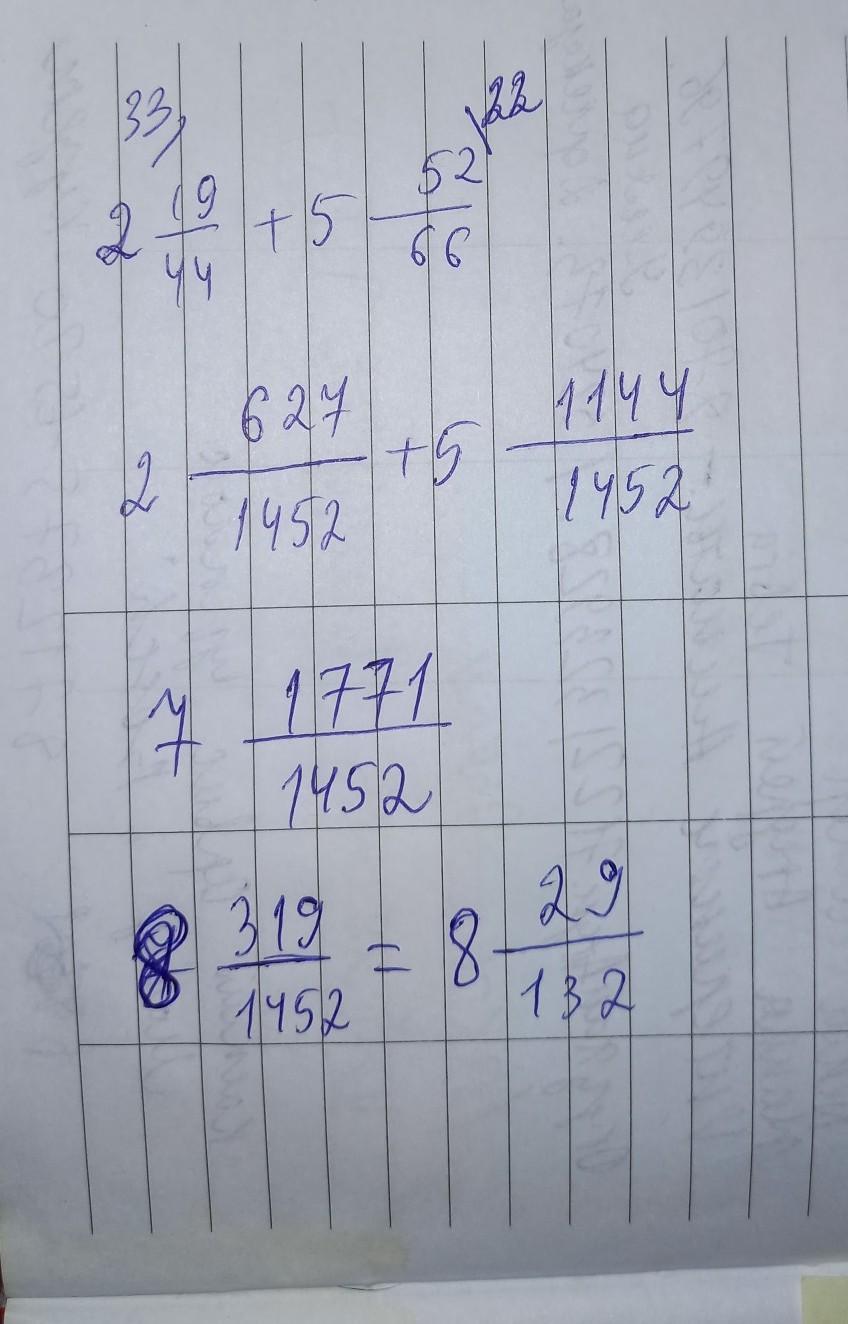 33 22
2 19/44 + 5 52/66
2 627/1452 + 5 1144/1452
7 1771/1452
8 319/1452 = 8 29/132